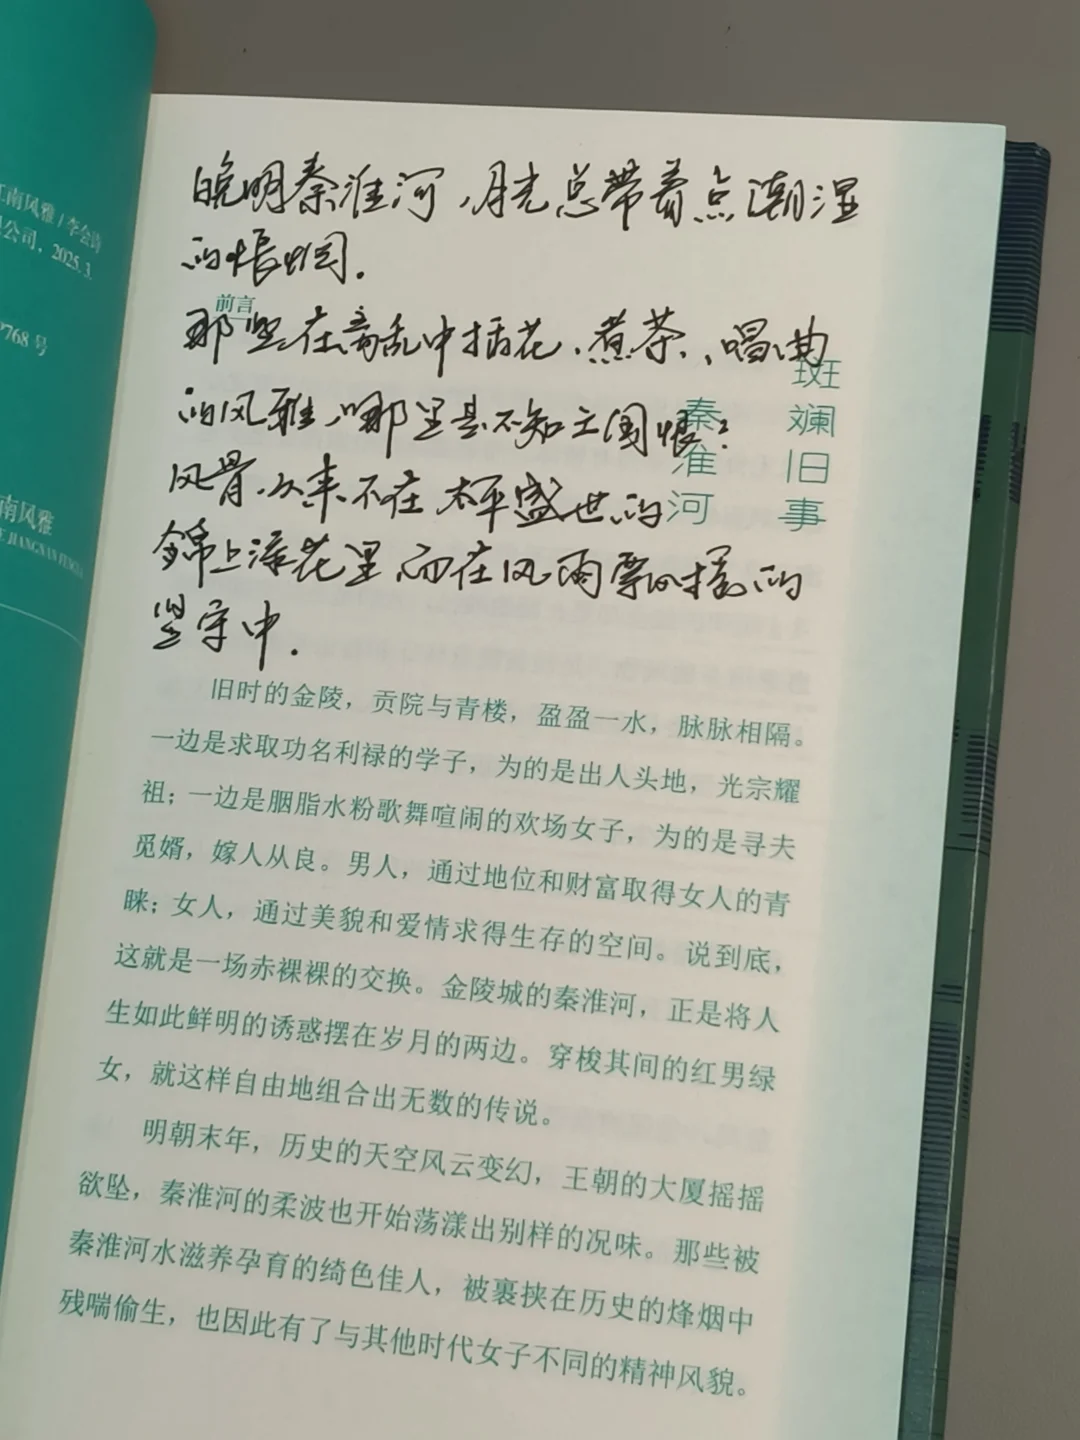 江南风雅 / 李会诗
公司，2025.3.
768 号
南风雅
JIANGNAN FENGYA
晚明秦淮河，月光总带着点潮湿
的怅惘.
前言
那些在离乱中插花、煮茶、唱曲
的风雅，哪里是不知亡国恨？
风骨从来不在太平盛世的
锦上添花里而在风雨飘摇的
坚守中.
斑斓旧事
秦淮河
旧时的金陵，贡院与青楼，盈盈一水，脉脉相隔。
一边是求取功名利禄的学子，为的是出人头地，光宗耀
祖；一边是胭脂水粉歌舞喧闹的欢场女子，为的是寻夫
觅婿，嫁人从良。男人，通过地位和财富取得女人的青
睐；女人，通过美貌和爱情求得生存的空间。说到底，
这就是一场赤裸裸的交换。金陵城的秦淮河，正是将人
生如此鲜明的诱惑摆在岁月的两边。穿梭其间的红男绿
女，就这样自由地组合出无数的传说。
明朝末年，历史的天空风云变幻，王朝的大厦摇摇
欲坠，秦淮河的柔波也开始荡漾出别样的况味。那些被
秦淮河水滋养孕育的绮色佳人，被裹挟在历史的烽烟中
残喘偷生，也因此有了与其他时代女子不同的精神风貌。